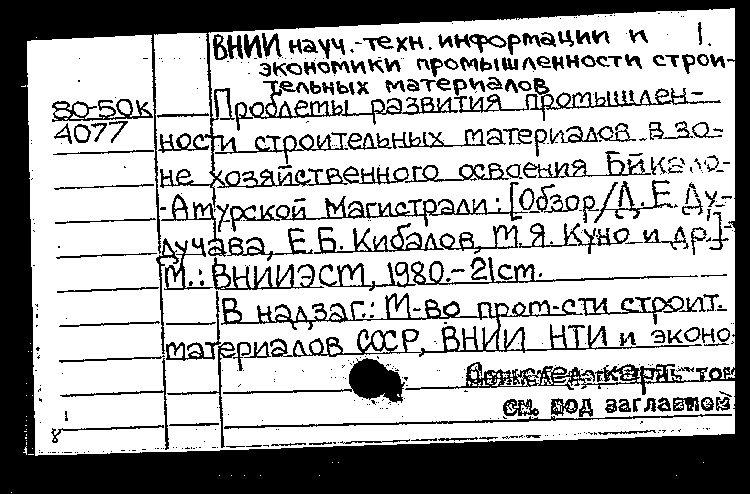 ВНИИ науч.-техн. информации и 1.
экономики промышленности строи-
тельных материалов
80-50к Проблемы развития промышлен-
4077 ности строительных материалов в зо-
не хозяйственного освоения Байкало-
-Амурской Магистрали: [Обзор/Д. Е. Ду-
дучава, Е. Б. Кибалов, М. Я. Куно и др.]-
М.: ВНИИЭСМ, 1980.-21см.
В надзаг.: М-во пром-сти строит.
материалов СССР, ВНИИ НТИ и эконо
см. под заглавной
8